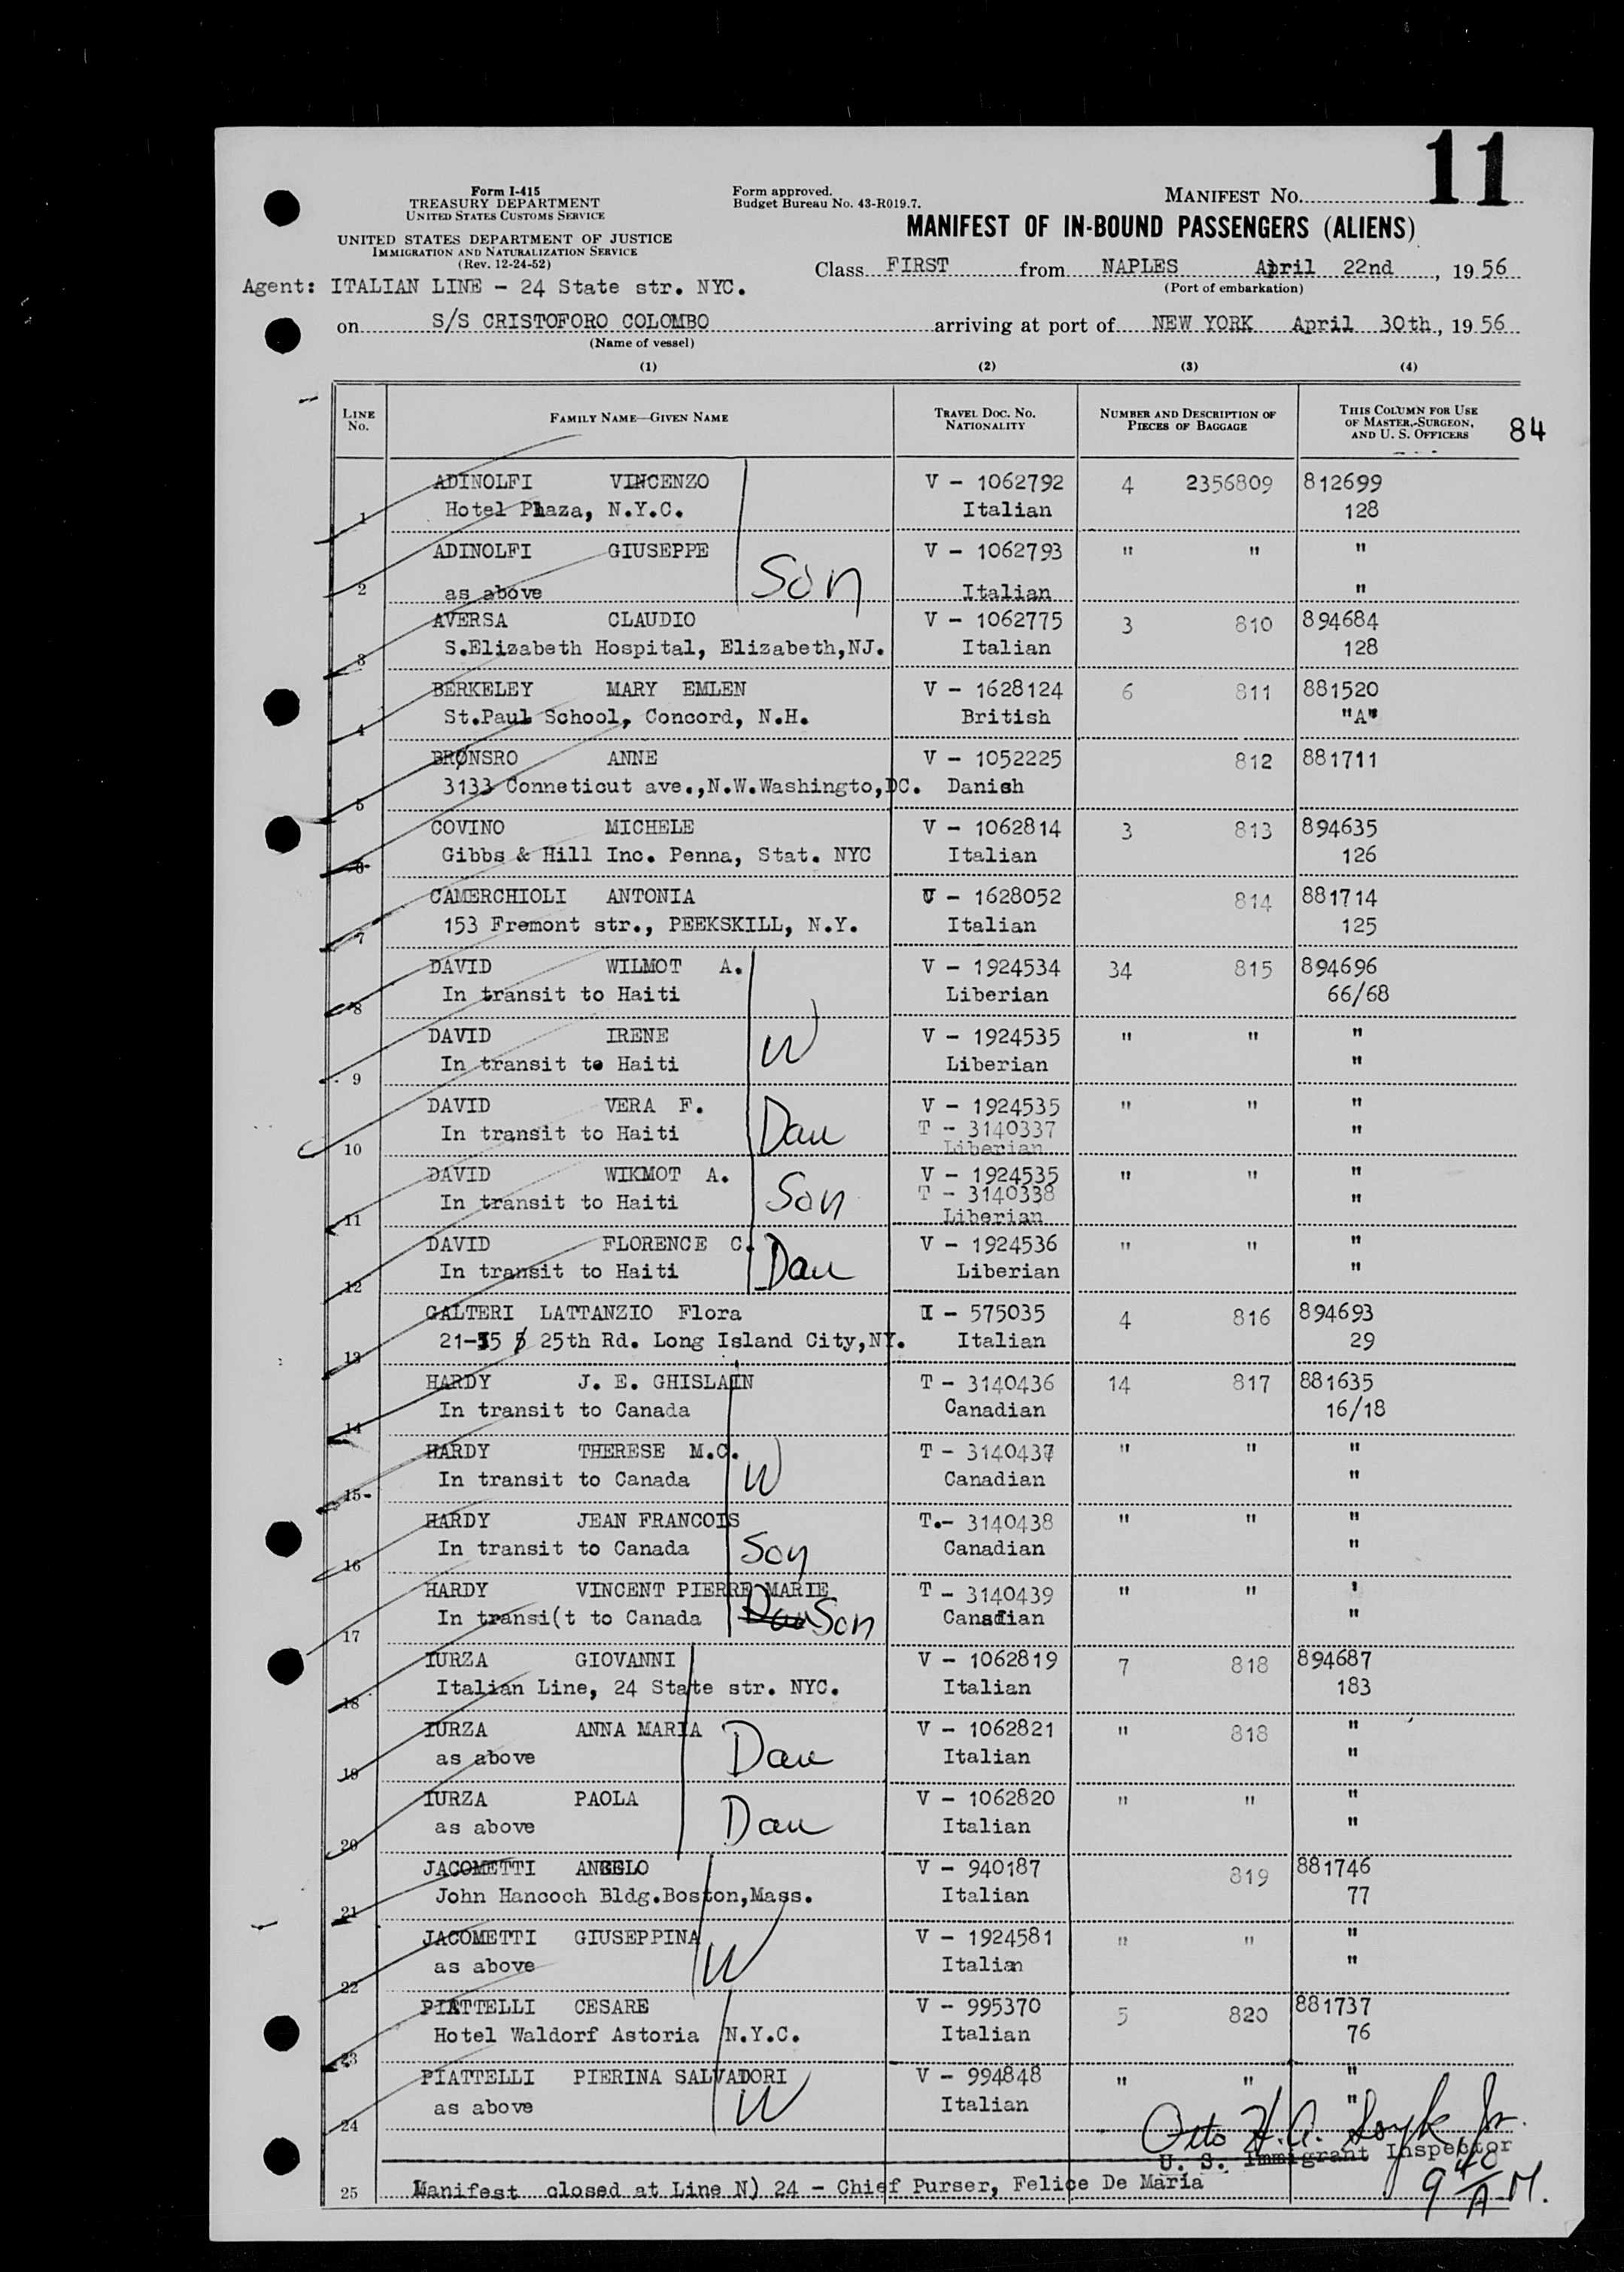 11
Form I-415
TREASURY DEPARTMENT
UNITED STATES CUSTOMS SERVICE
UNITED STATES DEPARTMENT OF JUSTICE
IMMIGRATION AND NATURALIZATION SERVICE
(Rev. 12-24-52)
Form approved.
Budget Bureau No. 43-R019.7.
MANIFEST No.
MANIFEST OF IN-BOUND PASSENGERS (ALIENS)
Class FIRST from NAPLES April 22nd, 1956
(Port of embarkation)
Agent: ITALIAN LINE - 24 State str. NYC.
on S/S CRISTOFORO COLOMBO arriving at port of NEW YORK April 30th., 1956
(Name of vessel)
(1) (2) (3) (4)
LINE No. FAMILY NAME—GIVEN NAME TRAVEL DOC. No. NATIONALITY NUMBER AND DESCRIPTION OF PIECES OF BAGGAGE THIS COLUMN FOR USE OF MASTER, SURGEON, AND U. S. OFFICERS 84
ADINOLFI VINCENZO V - 1062792 4 2356809 812699
1 Hotel Plaza, N.Y.C. Italian 128
ADINOLFI GIUSEPPE V - 1062793 " " "
2 as above Son Italian "
AVERSA CLAUDIO V - 1062775 3 810 894684
3 S.Elizabeth Hospital, Elizabeth,NJ. Italian 128
BERKELEY MARY EMLEN V - 1628124 6 811 881520
4 St.Paul School, Concord, N.H. British "A"
BRØNSRO ANNE V - 1052225 812 881711
5 3133 Conneticut ave.,N.W.Washingto,DC. Danish
COVINO MICHELE V - 1062814 3 813 894635
6 Gibbs & Hill Inc. Penna, Stat. NYC Italian 126
CAMERCHIOLI ANTONIA V - 1628052 814 881714
7 153 Fremont str., PEEKSKILL, N.Y. Italian 125
DAVID WILMOT A. V - 1924534 34 815 894696
8 In transit to Haiti Liberian 66/68
DAVID IRENE V - 1924535 " " "
9 In transit to Haiti W Liberian "
DAVID VERA F. V - 1924535 " " "
10 In transit to Haiti Dau T - 3140337 "
Liberian
DAVID WIKMOT A. V - 1924535 " " "
11 In transit to Haiti Son T - 3140338 "
Liberian
DAVID FLORENCE C. V - 1924536 " " "
12 In transit to Haiti Dau Liberian "
GALTERI LATTANZIO Flora I - 575035 4 816 894693
13 21-35 25th Rd. Long Island City,NY. Italian 29
HARDY J. E. GHISLAIN T - 3140436 14 817 881635
14 In transit to Canada Canadian 16/18
HARDY THERESE M.C. T - 3140437 " " "
15 In transit to Canada W Canadian "
HARDY JEAN FRANCOIS T.- 3140438 " " "
16 In transit to Canada Son Canadian "
HARDY VINCENT PIERRE MARIE T - 3140439 " " '
17 In transi(t to Canada Dau Son Canadian "
IURZA GIOVANNI V - 1062819 7 818 894687
18 Italian Line, 24 State str. NYC. Italian 183
IURZA ANNA MARIA V - 1062821 " 818 "
19 as above Dau Italian "
IURZA PAOLA V - 1062820 " " "
20 as above Dau Italian "
JACOMETTI ANGELO V - 940187 819 881746
21 John Hancoch Bldg.Boston,Mass. Italian 77
JACOMETTI GIUSEPPINA V - 1924581 " " "
22 as above W Italian "
PIATTELLI CESARE V - 995370 5 820 881737
23 Hotel Waldorf Astoria N.Y.C. Italian 76
PIATTELLI PIERINA SALVADORI V - 994848 " " "
24 as above W Italian "
Otto H.A. Jr.
U. S. Immigrant Inspector
25 Manifest closed at Line N) 24 - Chief Purser, Felice De Maria
9 40 A.M.